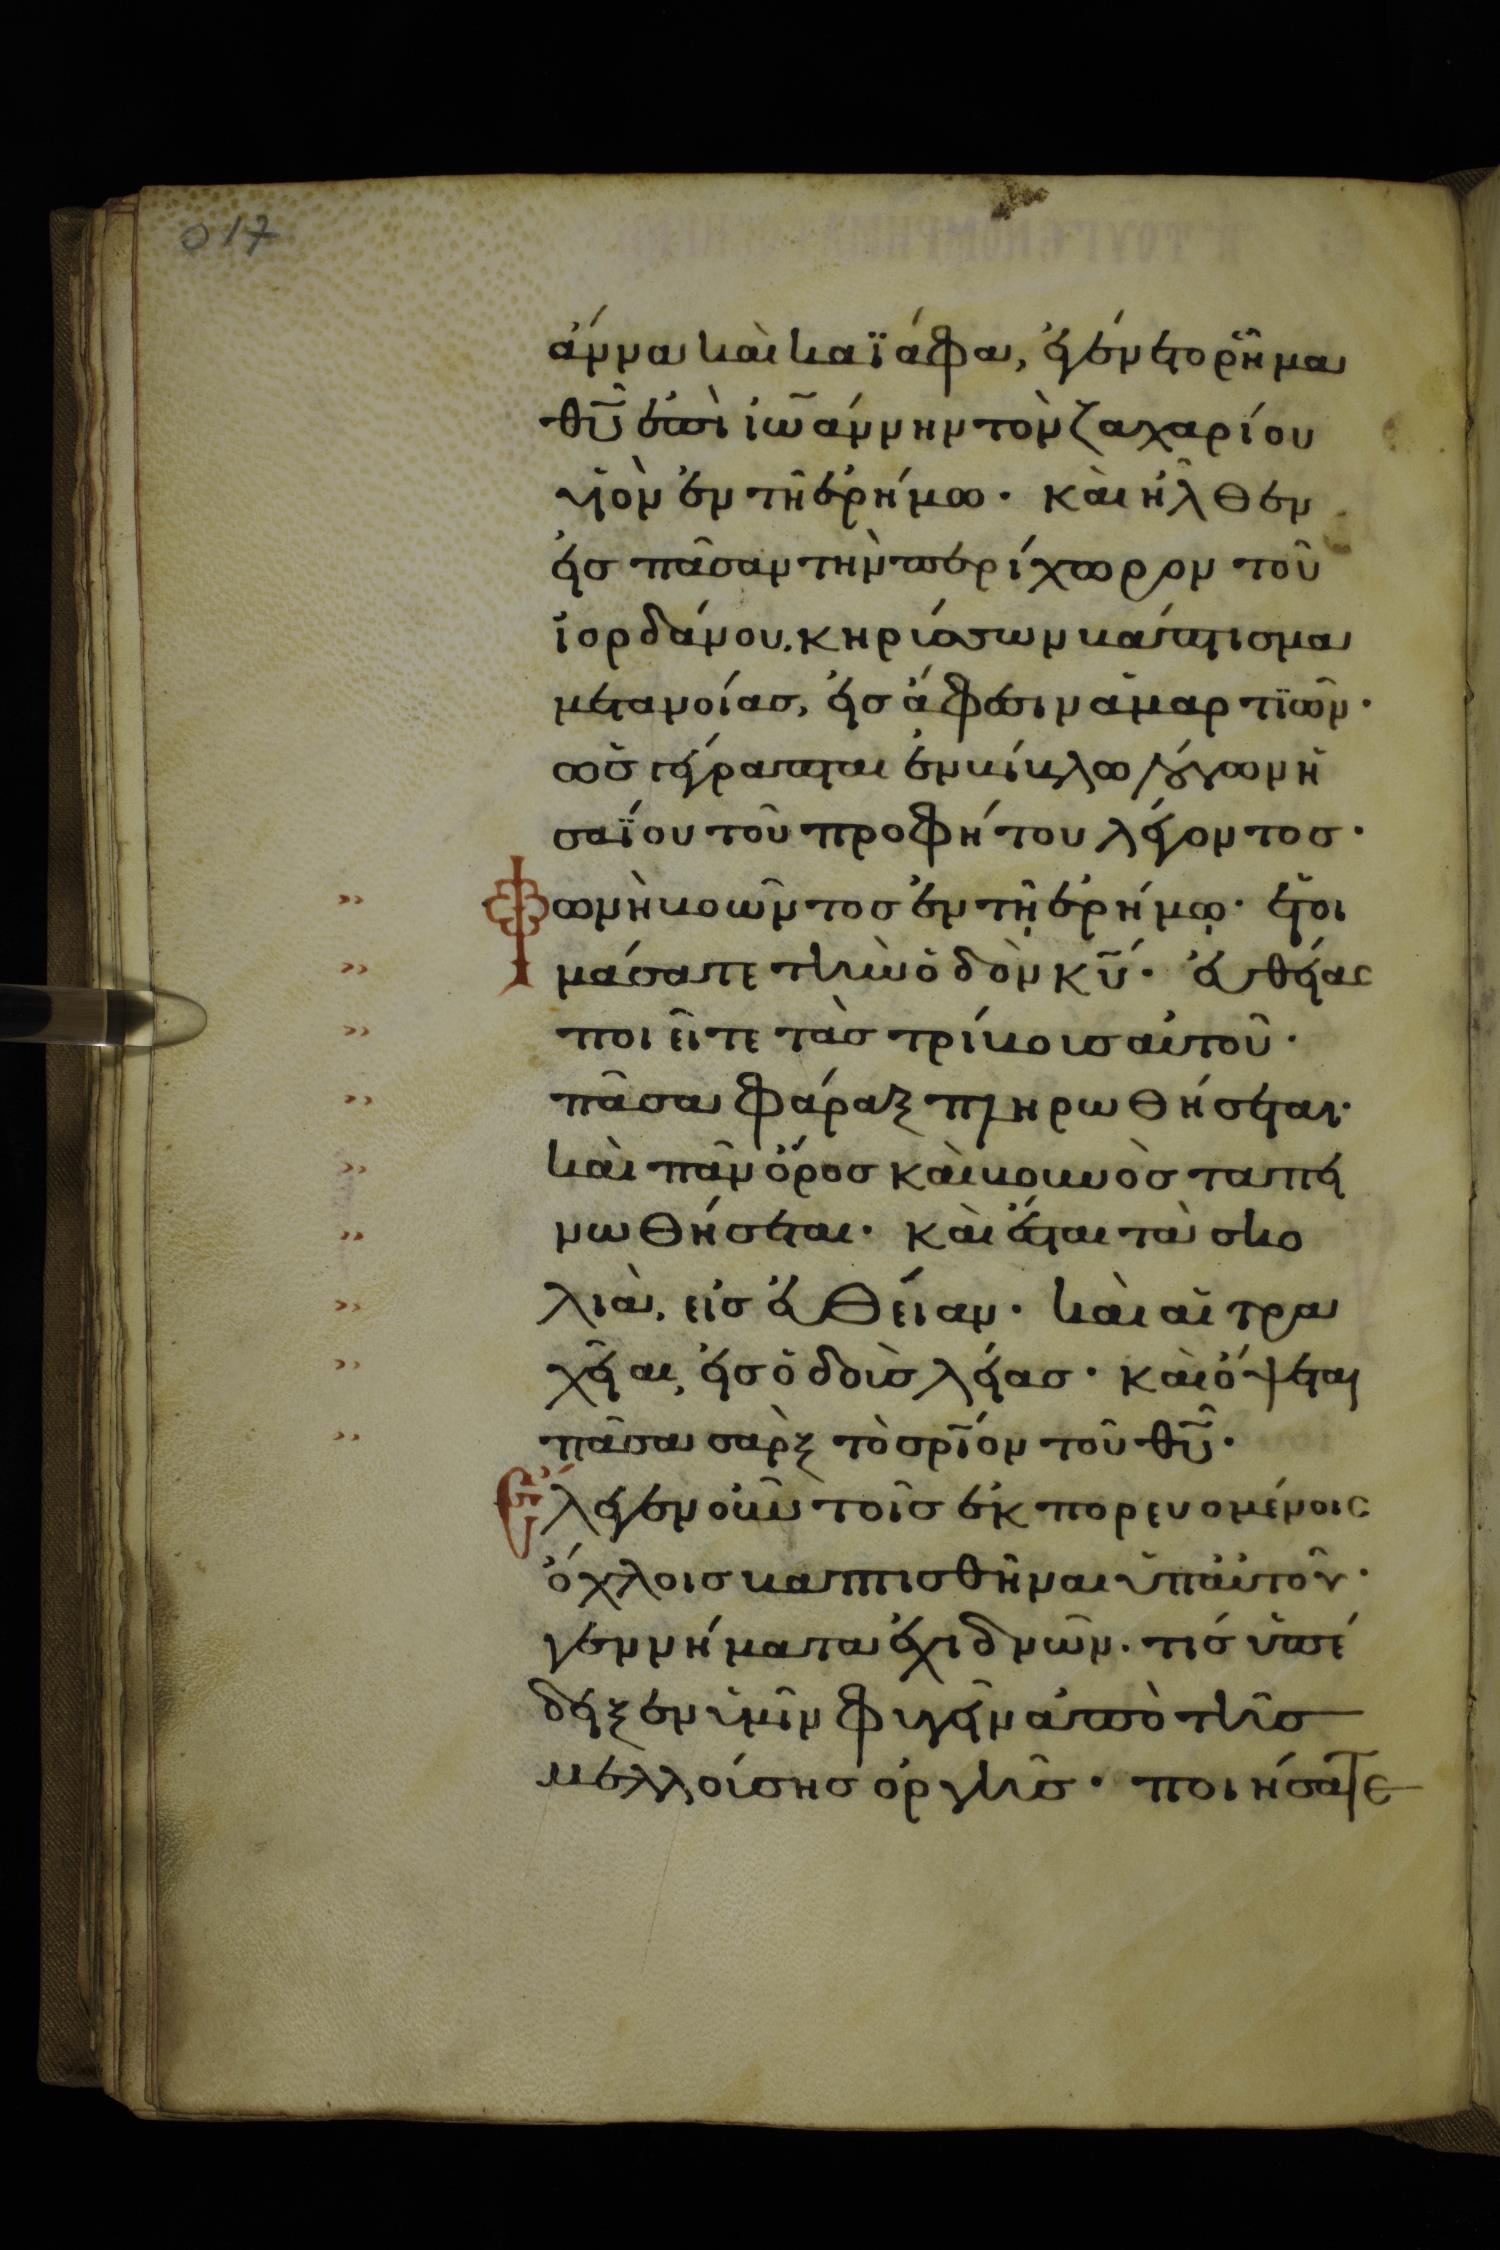 017
ἄννα καὶ καϊάφα, ἐγένετο ῥῆμα
θῦ ἐπὶ ἰωάννην τὸν ζαχαρίου
υἱὸν ἐν τῆ ἐρήμω· καὶ ἦλθεν
εἰσ πᾶσαν τὴν περίχωρον τοῦ
ἰορδάνου, κηρύσσων βάπτισμα
μετανοίασ, εἰσ ἄφεσιν ἁμαρτϊῶν·
ὡσ γέγραπται ἐν βίβλω λόγων ἡ
σαΐου τοῦ προφήτου λέγοντοσ·
Φωνὴ βοῶντοσ ἐν τῇ ἐρήμῳ· ἑτοι
μάσατε τὴν ὁδὸν κῦ· εὐθείας
ποιεῖτε τὰσ τρίβουσ αὐτοῦ·
πᾶσα φάραξ πληρωθήσεται·
καὶ πᾶν ὄροσ καὶ βουνὸσ ταπει
νωθήσεται· καὶ ἔσται τὰ σκο
λιὰ, εἰσ εὐθεῖαν· καὶ αἱ τρα
χεῖαι, εἰσ ὁδοὺσ λείασ· καὶ ὄψεται
πᾶσα σὰρξ τὸ σρῖον τοῦ θῦ·
Ἔλεγεν οὖν τοῖσ ἐκπορευομένοις
ὄχλοισ βαπτισθῆναι ὑπ' αὐτοῦ·
γεννήματα ἐχιδνῶν· τίσ ὑπέ
δειξεν ὑμῖν φυγεῖν ἀπὸ τῆσ
μελλούσησ ὀργῆσ· ποιήσατε